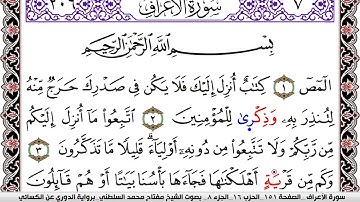 ٢٠٦ سُورَةُ الْأَعْرَافِ ٧
بِسْمِ اللَّهِ الرَّحْمَٰنِ الرَّحِيمِ
الٓمٓصٓ ١ كِتَٰبٌ أُنزِلَ إِلَيْكَ فَلَا يَكُن فِى صَدْرِكَ حَرَجٌ مِّنْهُ
لِتُنذِرَ بِهِۦ وَذِكْرَىٰ لِلْمُؤْمِنِينَ ٢ ٱتَّبِعُوا۟ مَآ أُنزِلَ إِلَيْكُم
مِّن رَّبِّكُمْ وَلَا تَتَّبِعُوا۟ مِن دُونِهِۦٓ أَوْلِيَآءَ قَلِيلًا مَّا تَذَكَّرُونَ ٣
وَكَم مِّن قَرْيَةٍ أَهْلَكْنَٰهَا فَجَآءَهَا بَأْسُنَا بَيَٰتًا أَوْ هُمْ قَآئِلُونَ
سورة الأعراف . الصفحة ١٥١ الحزب ١٦ الجزء ٨. بصوت الشيخ مفتاح محمد السلطني .برواية الدوري عن الكسائي